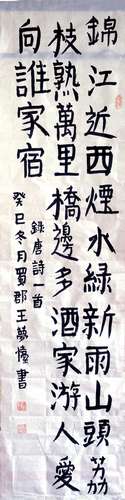 錦江近西煙水綠新雨山頭荔
枝熟萬里橋邊多酒家游人愛
向誰家宿
錄唐詩一首
癸巳冬月蜀郡王夢書